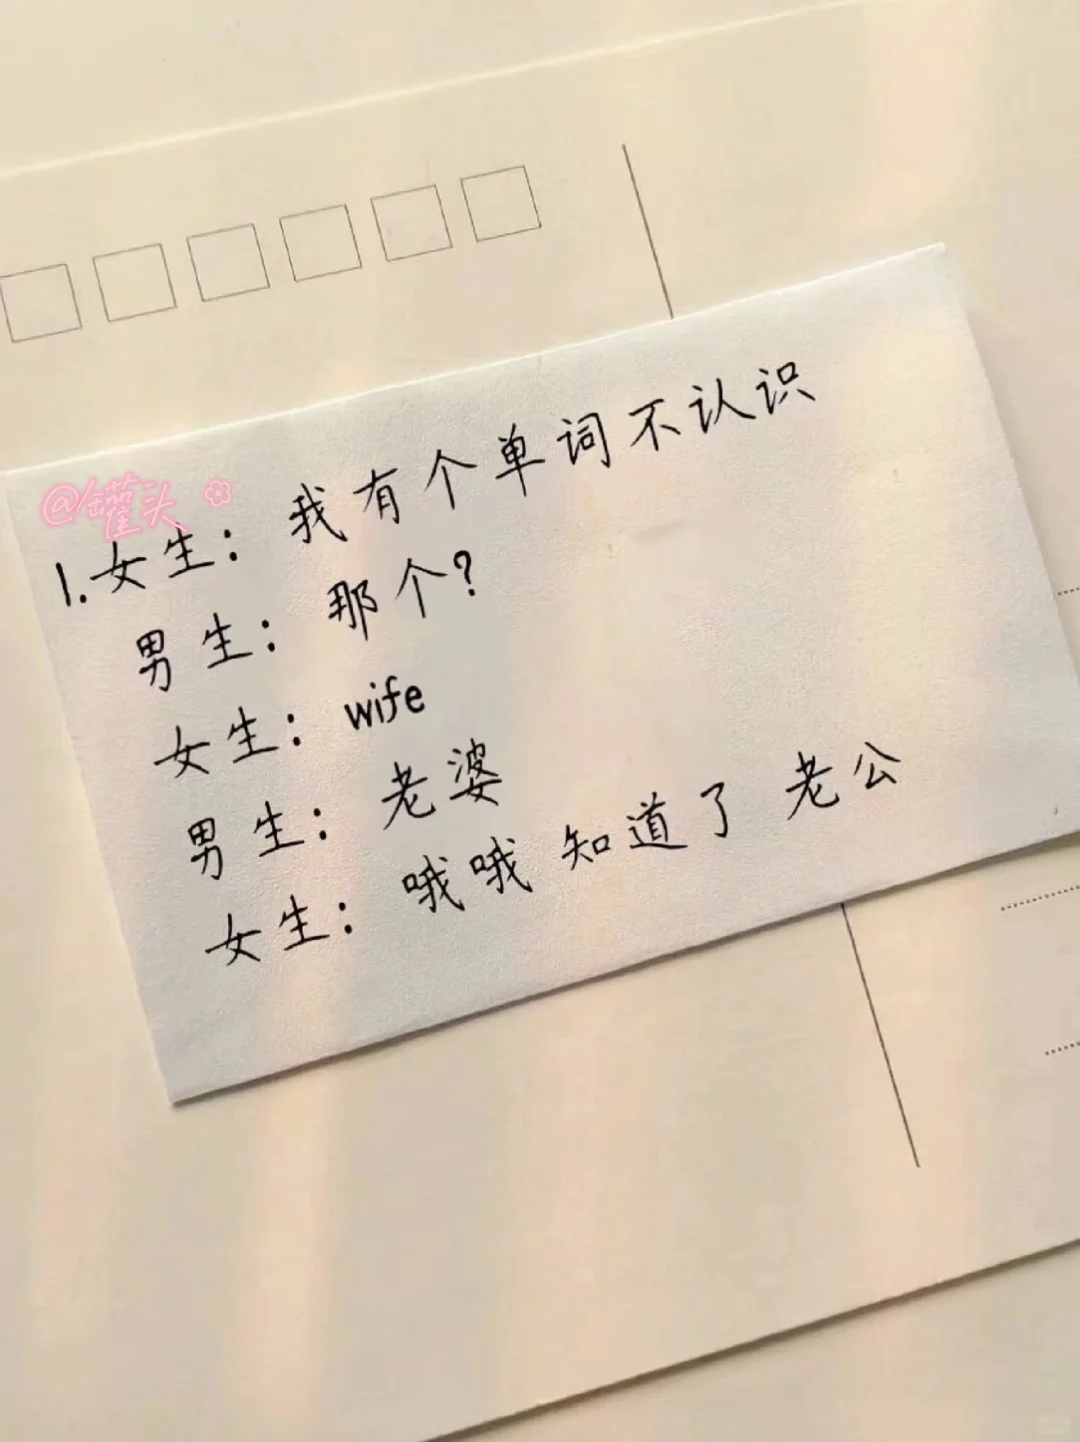 @罐头
1.女生：我有个单词不认识
男生：那个？
女生：wife
男生：老婆
女生：哦哦 知道了 老公